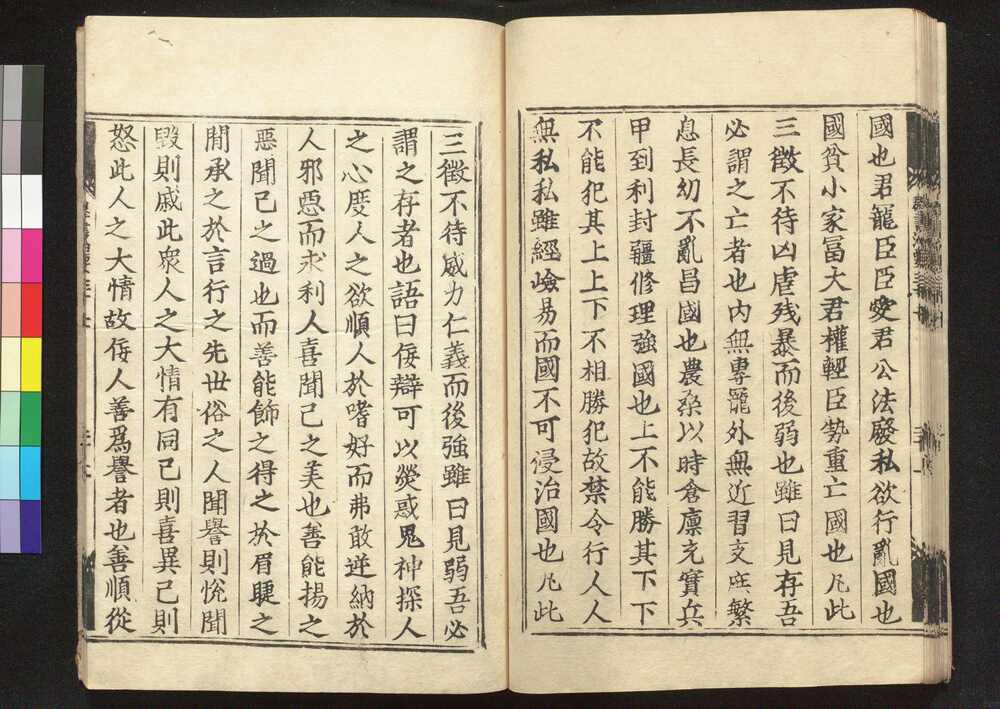 國也君寵臣臣愛君公法廢私欲行亂國也
國貧小家冨大君權輕臣勢重亡國也凡此
三徴不待凶虐残暴而後弱也雖曰見存吾
必謂之亡者也内無專寵外無近習支庶繁
息長幼不亂昌國也農桒以時倉廪充實兵
甲到利封疆修理強國也上不能勝其下下
不能犯其上上下不相勝犯故禁令行人人
無私私雖經嶮易而國不可侵治國也凡此
三徴不待威力仁義而後強雖曰見弱吾必
謂之存者也語曰佞辯可以熒惑鬼神探人
之心度人之欲順人於嗜好而弗敢逆納於
人邪惡而求利人喜聞己之美也善能揚之
惡聞己之過也而善能飾之得之於眉睫之
間承之於言行之先世俗之人聞譽則悅聞
毀則戚此衆人之大情有同己則喜異己則
怒此人之大情故佞人善爲譽者也善順從